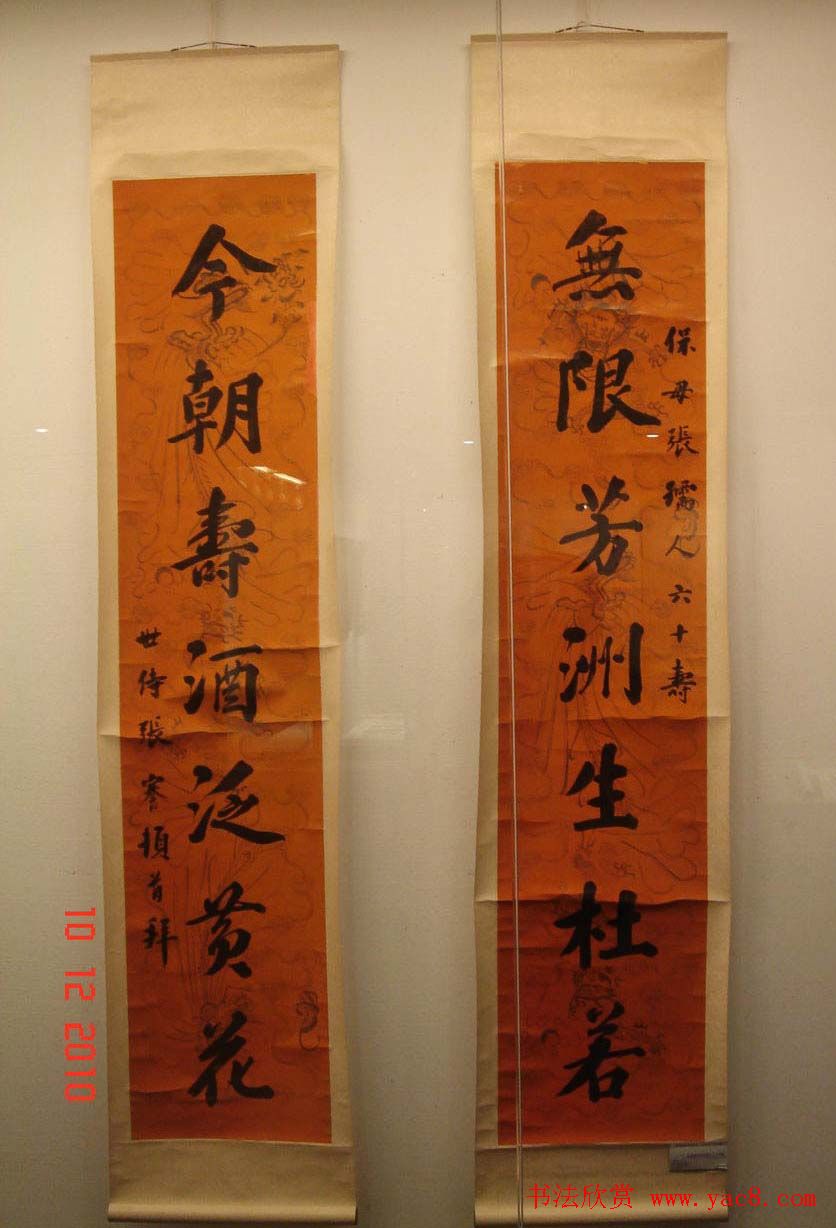 保母張孺人六十壽
無限芳洲生杜若
今朝壽酒泛黃花
世侍張謇頓首拜
10 12 2010
书法欣赏 www.yac8.com